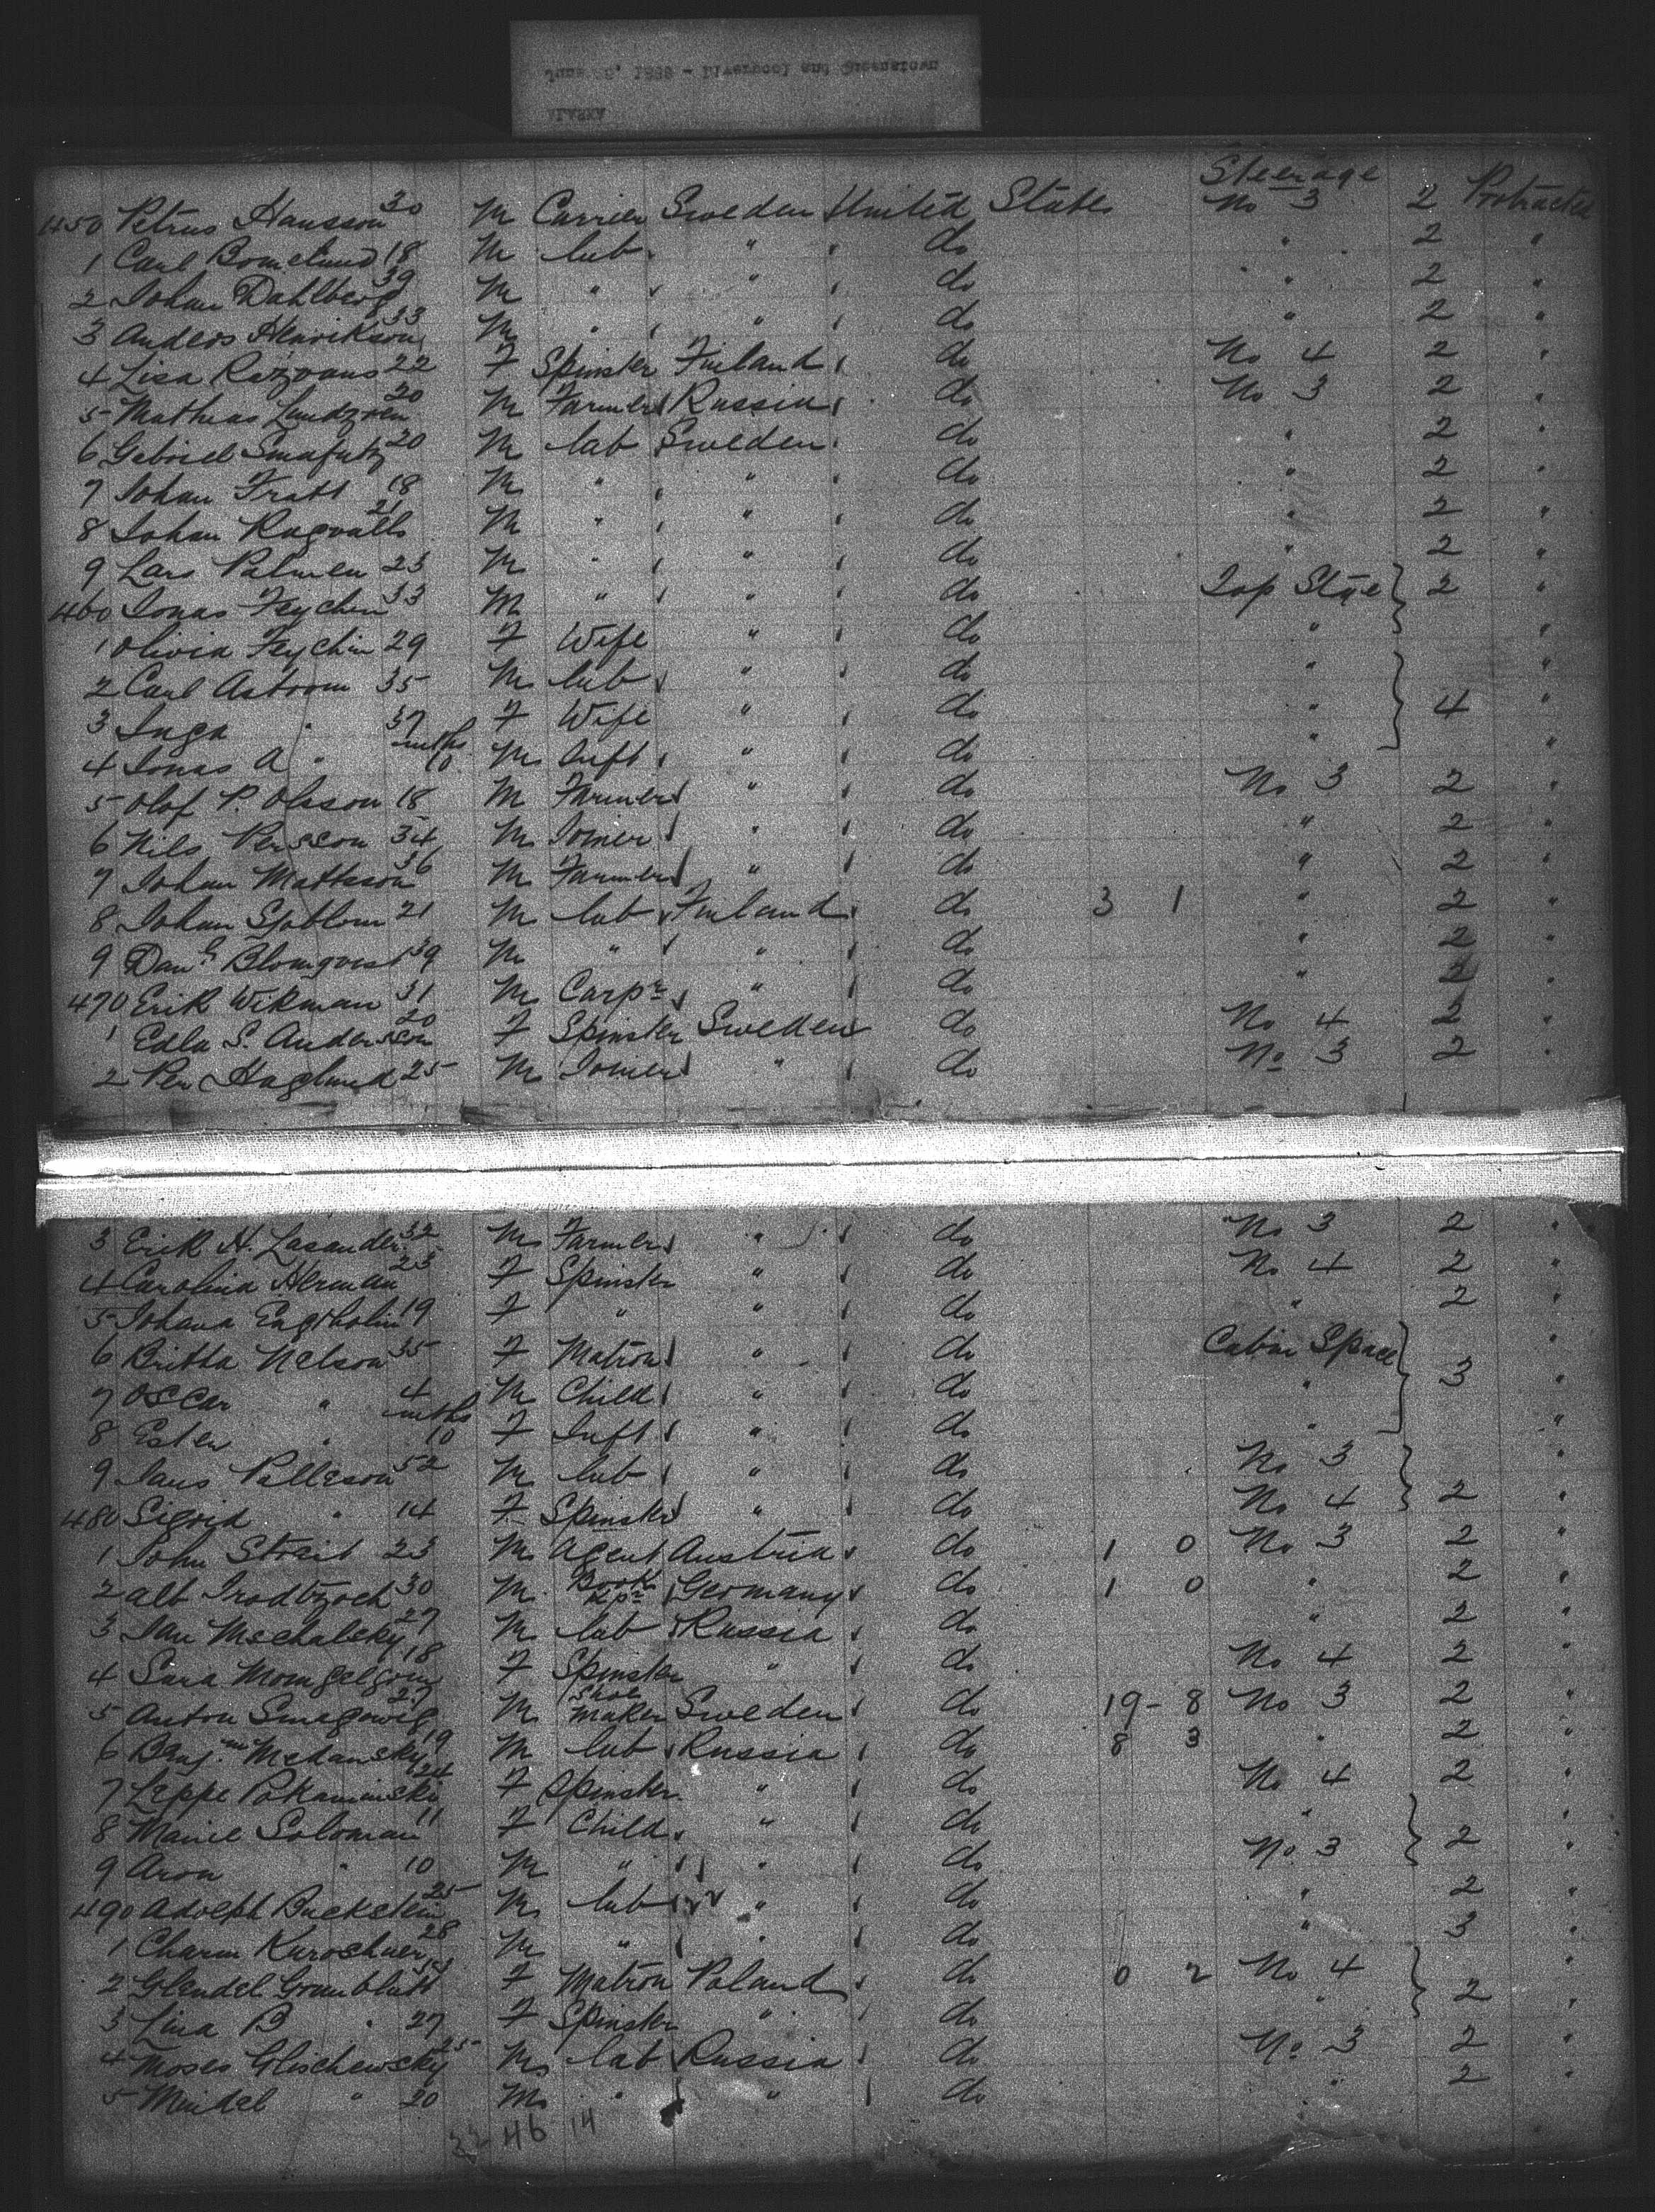 ALASKA
June , 1888 - Liverpool and Queenstown
Steerage
450 Petrus Hansson 30 M Carrier Sweden United States No 3 2 Protracted
1 Carl 18 M lab " do " 2 "
2 Johan Dahlberg 39 M " " do " 2 "
3 Anders Henrikson 33 M " " do " 2 "
4 Lisa 22 F Spinster Finland do No 4 2 "
5 Mathias 20 M Farmer Russia do No 3 2 "
6 Gabriel 20 M lab Sweden do " 2 "
7 Johan Fratt 18 M " " do " 2 "
8 Johan Ragvalls 21 M " " do " 2 "
9 Lars Palmen 23 M " " do " 2 "
460 Jonas Feychin 33 M " " do Top Stge 2 "
1 Olivia Feychin 29 F Wife " do " "
2 Carl Astrom 35 M lab " do " "
3 Inga " 37 F Wife " do " 4 "
4 Jonas A " mths 10 M Inft " do " "
5 Olof P. Olsson 18 M Farmer " do No 3 2 "
6 Nils Persson 34 M Joiner " do " 2 "
7 Johan Mattsson 36 M Farmer " do " 2 "
8 Johan Sjoblom 21 M lab Finland do 3 1 " 2 "
9 Danl Blomqvist 39 M " " do " 2 "
470 Erik Wikman 31 M Carpr " do " 2 "
1 Edla S. Andersson 20 F Spinster Sweden do No 4 2 "
2 Per Haglund 25 M Joiner " do No 3 2 "
3 Erik H. Lasander 32 M Farmer " do No 3 2 "
4 Carolina Herman 23 F Spinster " do No 4 2 "
5 Johana Engholm 19 F " " do " 2 "
6 Britta Nelson 35 F Matron " do Cabin Space "
7 Oscar " 4 M Child " do " 3
8 Ester " mths 10 F Inft " do " "
9 Jans Palleson 52 M lab " do No 3 "
480 Sigrid " 14 F Spinster " do No 4 2 "
1 John Strait 23 M Agent Austria do 1 0 No 3 2 "
2 Alb 30 M Book Kpr Germany do 1 0 " 2 "
3 Jan Mschalsky 27 M lab Russia do " 2 "
4 Sara 18 F Spinster " do No 4 2 "
5 Anton 27 M Shoe Maker Sweden do 19 - 8 No 3 2 "
6 Benjmn Mckansky 19 M lab Russia do 8 3 " 2 "
7 Leppe Pokaminski 24 F Spinster " do No 4 2 "
8 Marie Soloman 11 F Child " do " "
9 Aron " 10 M " " do No 3 2 "
490 Adolph Buckstein 25 M lab " do " 2 "
1 Charm Kuroshner 28 M " " do " 3 "
2 Glendel Grunblatt F Matron Poland do 0 2 No 4 "
3 Lina B " 27 F Spinster " do " 2 "
4 Moses Glischewsky 25 M lab Russia do No 3 2 "
5 Mindel " 20 M " " do " 2 "
22 46 14